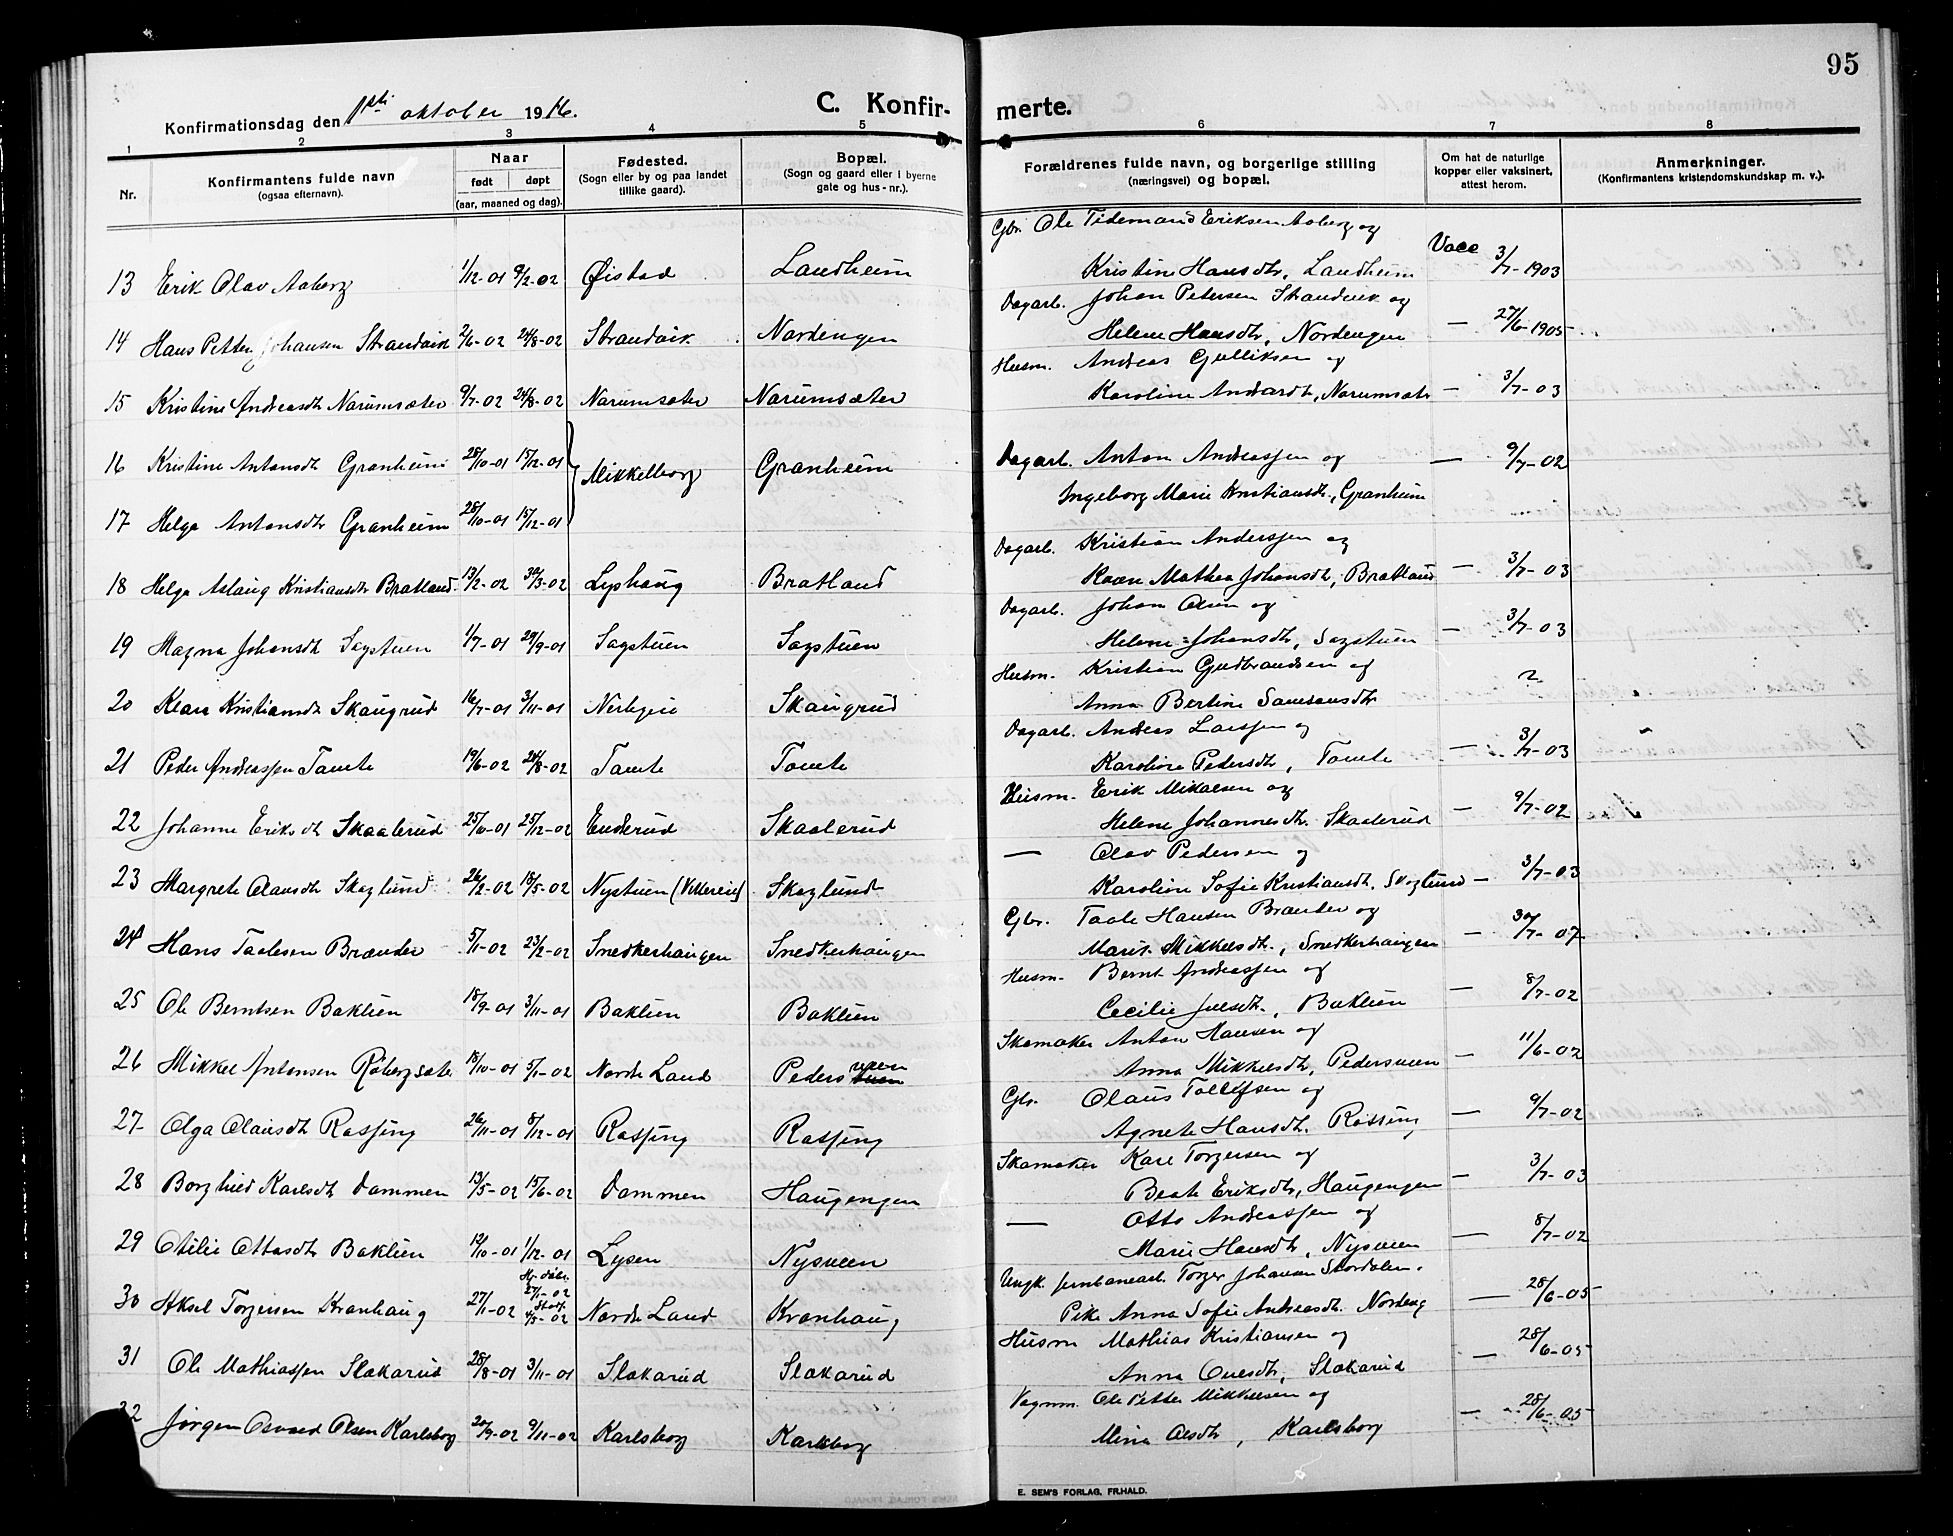 95
Konfirmationsdag den 1ste oktober 1916. C. Konfirmerte.
1 2 3 4 5 6 7 8
Nr. Konfirmantens fulde navn (ogsaa efternavn). Naar født døpt (aar, maaned og dag). Fødested. (Sogn eller by og paa landet tillike gaard). Bopæl. (Sogn og gaard eller i byerne gate og hus-nr.). Forældrenes fulde navn, og borgerlige stilling (næringsvei) og bopæl. Om hat de naturlige kopper eller vaksinert, attest herom. Anmerkninger. (Konfirmantens kristendomskundskap m. v.).
Gbr. Ole Tidemand Eriksen Aaberg og
13 Erik Olav Aaberg 1/12-01 9/2-02 Øistad Landheim Kristine Hansdtr, Landheim Vacc 3/7-1903
Dagarb. Johan Petersen Strandvik og
14 Hans Petter Johansen Strandvik 2/6-02 24/8-02 Strandvik Nordengen Helene Hansdtr, Nordengen — 27/6-1905
Husm. Andreas Gulliksen og
15 Kristine Andreasdtr Narumsæter 9/7-02 24/8-02 Narumsæter Narumsæter Karoline Andersdtr, Narumsæter — 3/7-03
16 Kristine Antonsdtr Granheim 28/10-01 15/12-01 Mikkelborg Granheim Dagarb. Anton Andreassen og — 9/7-02
Ingeborg Marie Kristiansdtr, Granheim
17 Helga Antonsdtr Granheim 28/10-01 15/12-01
Dagarb. Kristian Anderssen og
18 Helga Aslaug Kristiansdtr Bratland 13/2-02 30/3-02 Lyshaug Bratland Karen Mathea Johansdtr, Bratland — 3/7-03
Dagarb. Johan Olsen og
19 Magna Johansdtr Sagstuen 1/7-01 29/9-01 Sagstuen Sagstuen Helene Johansdtr, Sagstuen — 3/7-03
Husm. Kristian Gudbrandsen og
20 Klara Kristiansdtr Skaugrud 16/7-01 3/11-01 Skaugrud Anna Bertine Samsonsdtr ?
Dagarb. Anders Larssen og
21 Peder Andreassen Tomte 19/6-02 24/8-02 Tomte Tomte Karoline Pedersdtr, Tomte — 3/7-03
Husm. Erik Mikalsen og
22 Johanne Eriksdtr Skaalerud 25/10-01 25/12-02 Enderud Skaalerud Helene Johannesdtr. Skaalerud — 9/7-02
— Olav Pedersen og
23 Margrete Olausdtr Skoglund 26/2-02 18/5-02 Nystuen Skoglund Karoline Sofie Kristiansdtr. Skoglund — 3/7-03
Gbr. Taale Hansen Brænder og
24 Hans Taalesen Brænder 5/11-02 23/2-02 Snedkerhaugen Snedkerhaugen Marit Mikkelsdtr., Snedkerhaugen — 30/7-07
Husm. Bernt Andreassen og
25 Ole Berntsen Baklien 18/9-01 3/11-01 Baklien Baklien Cecilie Julsdtr., Baklien — 8/7-02
Skomaker Anton Hansen og
26 Mikkel Antonsen Røbergsæter 18/10-01 5/1-02 Nordre Land Pedersveen Anna Mikkelsdtr, Pedersveen — 11/6-02
Gbr. Olaus Tollefsen og
27 Olga Olausdtr Røssing 26/11-01 8/12-01 Røssing Røssing Agnete Hansdtr. Røssing — 9/7-02
Skomaker Karl Torgersen og
28 Borghild Karlsdtr Dammen 13/5-02 15/6-02 Dammen Haugengen Beate Eriksdtr, Haugengen — 3/7-03
— Otto Andreassen og
29 Otilie Ottosdtr Baklien 12/10-01 1/12-01 Lysen Nysveen Marie Hansdtr, Nysveen — 8/7-02
Ungk. jernbanearb. Torger Johansen Stordalen.
30 Aksel Torgersen Kronhaug 27/1-02 Hj. døbt 27/1-02 Stadf. 4/5-02 Nordre Land Kronhaug Pike Anna Sofie Andreasdtr. Nordeng — 28/6-05
Husm Mathias Kristiansen og
31 Ole Mathiassen Slakarud 28/8-01 3/11-01 Slakarud Slakarud Anna Olesdtr, Slakarud — 28/6-05
Vognm. Ole Petter Mikkelsen og
32 Jørgen Osvald Olsen Karlsborg 20/9-02 9/11-02 Karlsborg Karlsborg Mina Olsdtr, Karlsborg — 28/6-05
E. SEM'S FORLAG, FR.HALD.